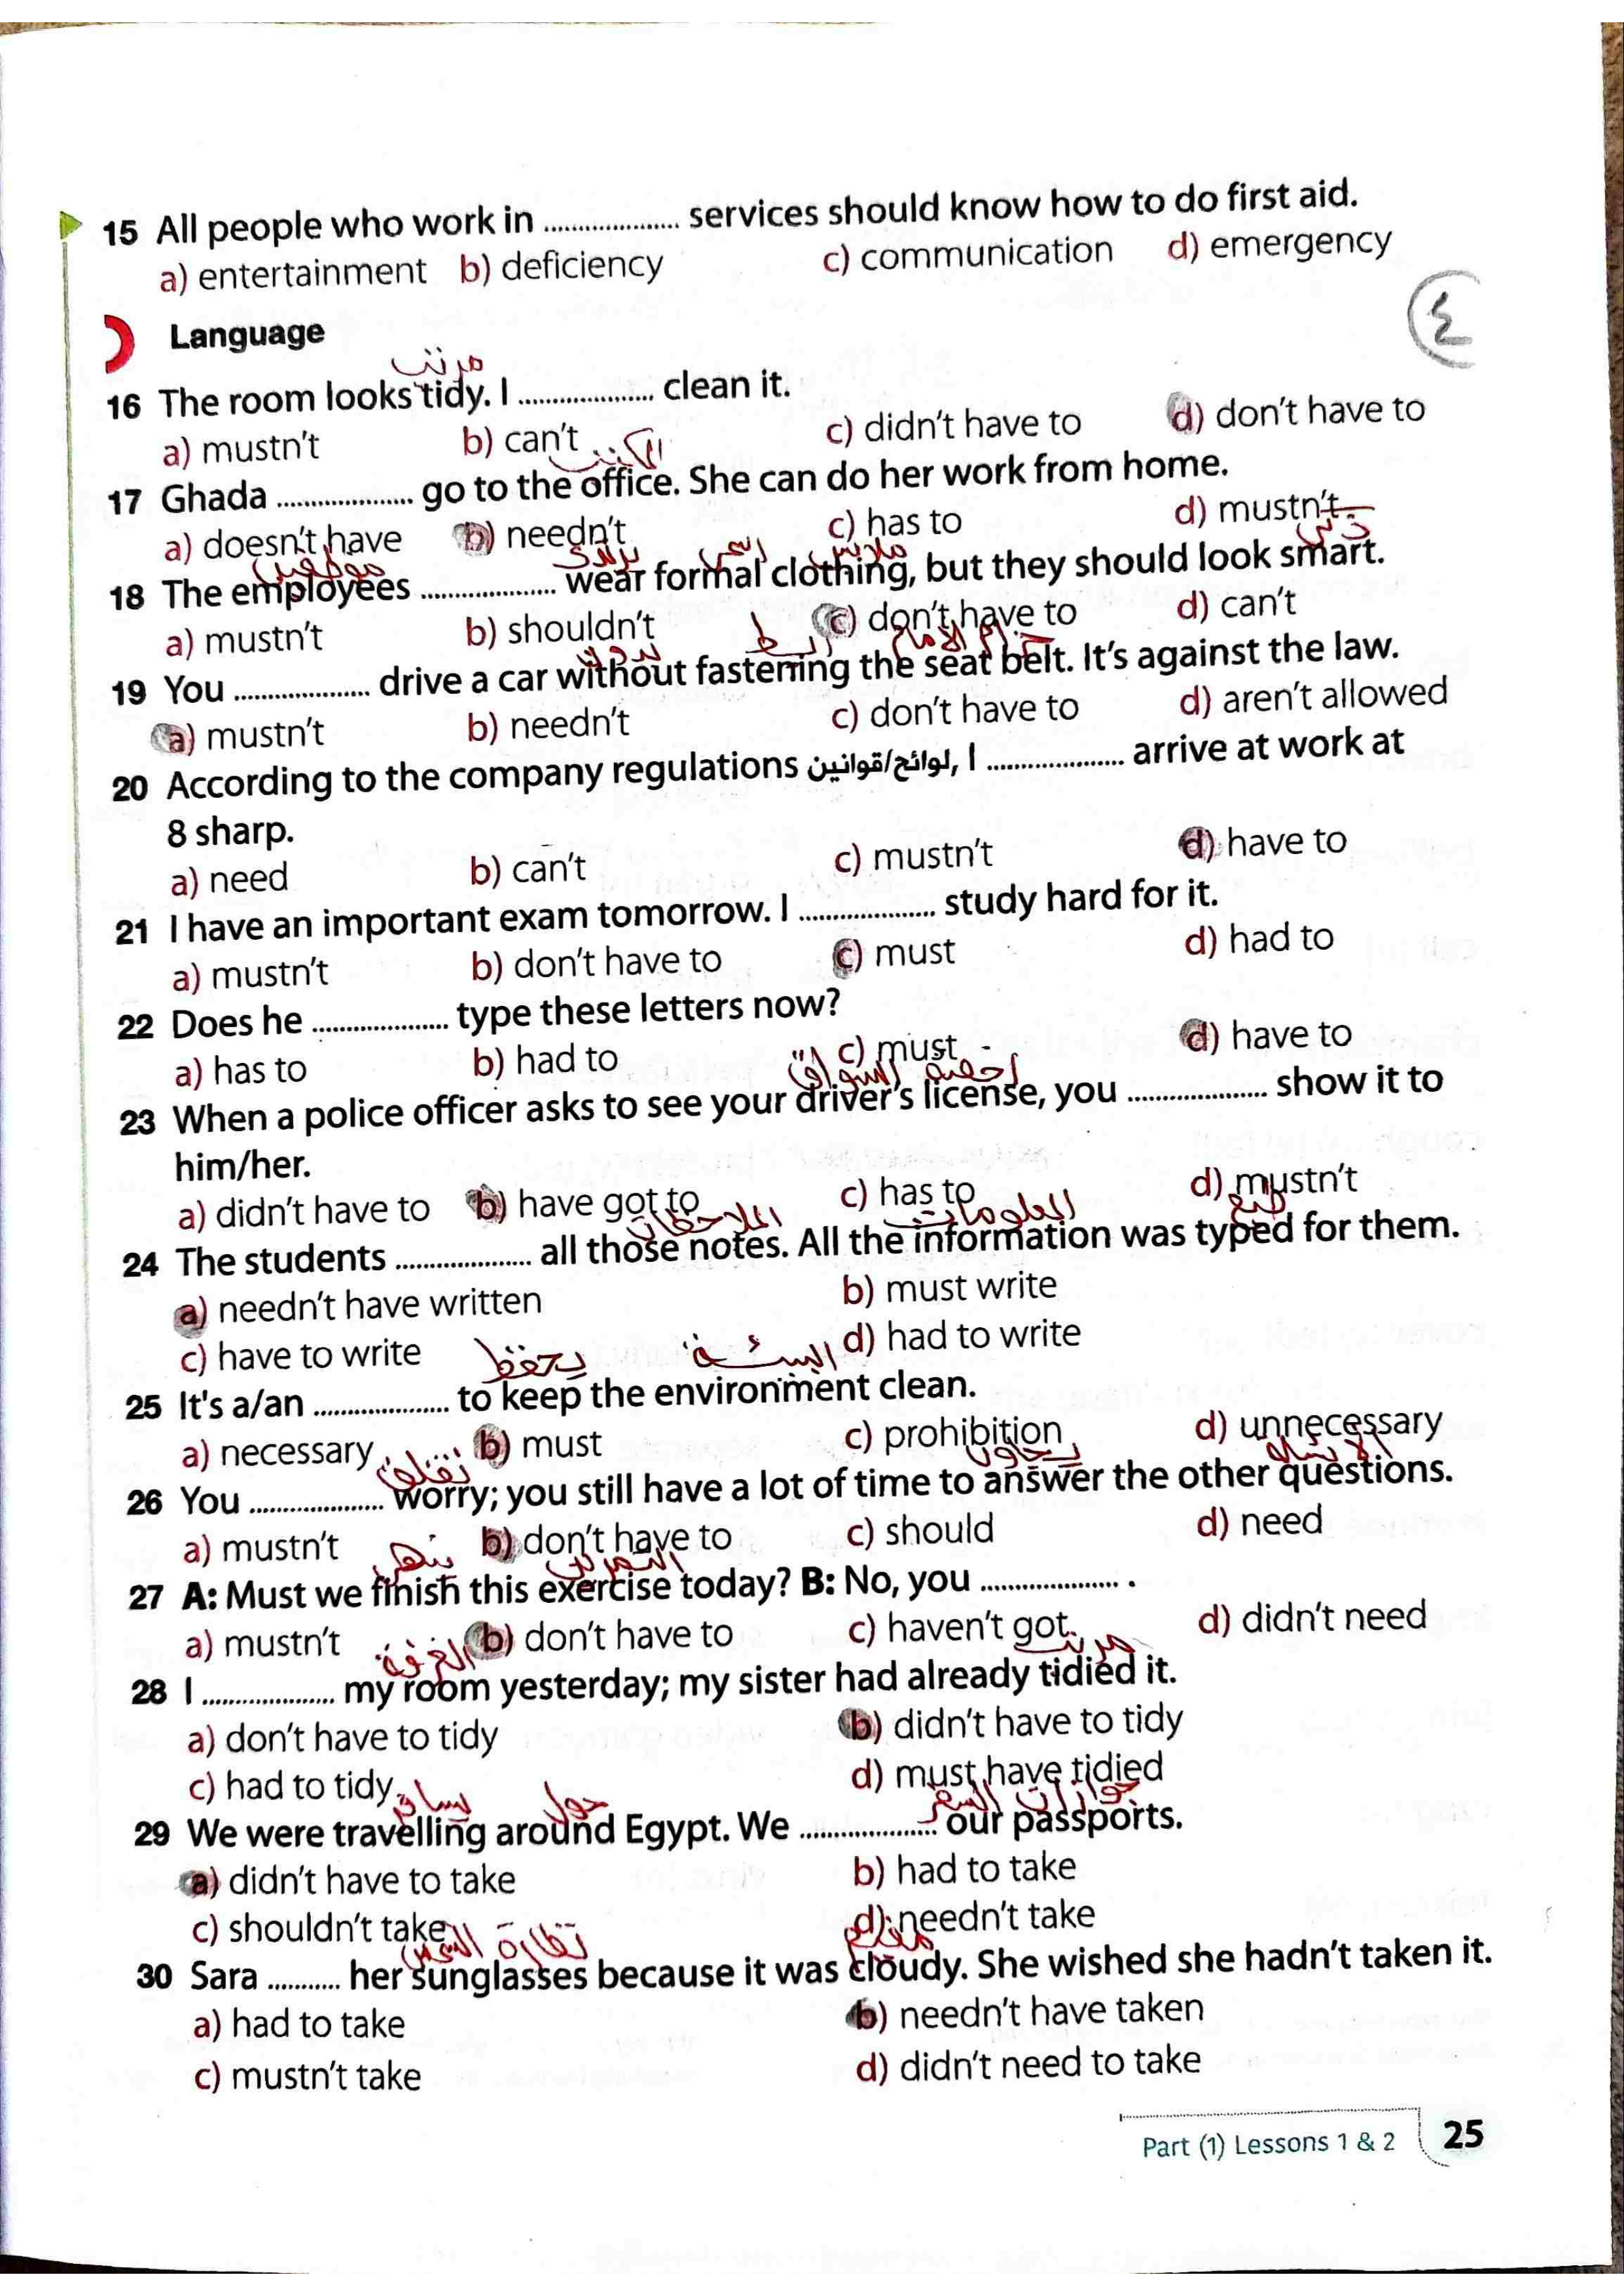 15 All people who work in .................... services should know how to do first aid.
a) entertainment b) deficiency c) communication d) emergency
٤
Language
مرتب
16 The room looks tidy. I .................... clean it.
a) mustn't b) can't c) didn't have to d) don't have to
المكتب
17 Ghada .................... go to the office. She can do her work from home.
a) doesn't have b) needn't c) has to d) mustn't
موظفين يرتدى رسمي ملابس ذكي
18 The employees .................... wear formal clothing, but they should look smart.
a) mustn't b) shouldn't c) don't have to d) can't
بدون ربط حزام الامام
19 You .................... drive a car without fastening the seat belt. It's against the law.
a) mustn't b) needn't c) don't have to d) aren't allowed
20 According to the company regulations لوائح/قوانين, I .................... arrive at work at
8 sharp.
a) need b) can't c) mustn't d) have to
21 I have an important exam tomorrow. I .................... study hard for it.
a) mustn't b) don't have to c) must d) had to
22 Does he .................... type these letters now?
a) has to b) had to c) must d) have to
23 When a police officer asks to see your driver's license, you .................... show it to
him/her.
a) didn't have to b) have got to c) has to d) mustn't
الملاحظات المعلومات طبع
24 The students .................... all those notes. All the information was typed for them.
a) needn't have written b) must write
c) have to write d) had to write
يحفظ البيئة
25 It's a/an .................... to keep the environment clean.
a) necessary b) must c) prohibition d) unnecessary
تقلق يجاوب الاسئله
26 You .................... worry; you still have a lot of time to answer the other questions.
a) mustn't b) don't have to c) should d) need
ينهي التمرين
27 A: Must we finish this exercise today? B: No, you .................... .
a) mustn't b) don't have to c) haven't got d) didn't need
الغرفة مرتب
28 I .................... my room yesterday; my sister had already tidied it.
a) don't have to tidy b) didn't have to tidy
c) had to tidy d) must have tidied
يسافر حول جوازات السفر
29 We were travelling around Egypt. We .................... our passports.
a) didn't have to take b) had to take
c) shouldn't take d) needn't take
نظارة الشمس
30 Sara ........... her sunglasses because it was cloudy. She wished she hadn't taken it.
a) had to take b) needn't have taken
c) mustn't take d) didn't need to take
Part (1) Lessons 1 & 2 25